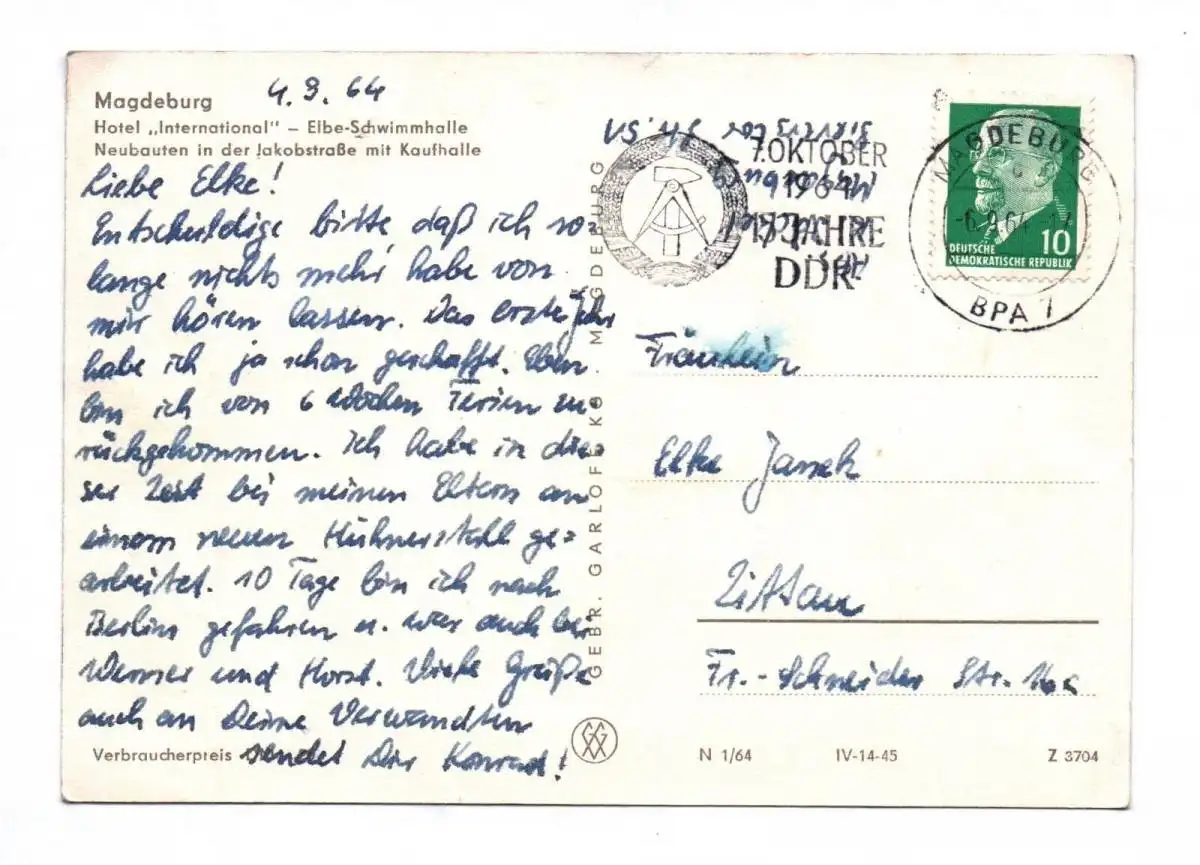 Magdeburg 4.9.64
Hotel „International" – Elbe-Schwimmhalle
Neubauten in der Jakobstraße mit Kaufhalle
Liebe Elke!
Entschuldige bitte daß ich so
lange nichts mehr habe von
mir hören lassen. Das erste Jahr
habe ich ja schon geschafft. Eben
bin ich von 6 Wochen Ferien zu
rückgekommen. Ich habe in die-
ser Zeit bei meinen Eltern an
einem neuen Hühnerstall ge=
arbeitet. 10 Tage bin ich nach
Berlin gefahren u. war auch bei
Werner und Horst. Viele Grüße
auch an Deine Verwandten
sendet Dir Konrad!
Verbraucherpreis
GEBR. GARLOFF KG. MAGDEBURG
7. OKTOBER
1964
15 JAHRE
DDR
MAGDEBURG
BPA 1
10
DEUTSCHE
DEMOKRATISCHE REPUBLIK
Fräulein
Elke
Zittau
Fr.-Schneider Str.
N 1/64 IV-14-45 Z 3704